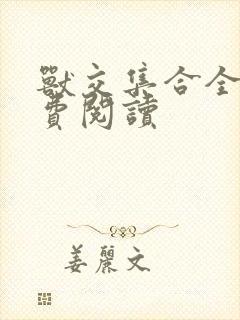 獸交集合全
費閱讀
姜麗文